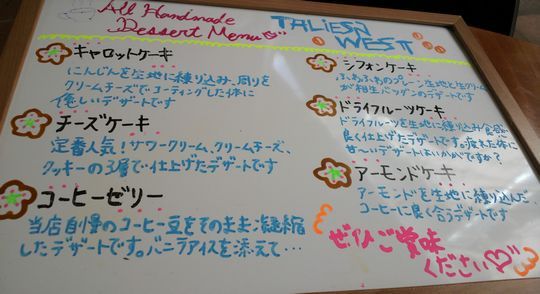 All Handmade
Dessert Menu
TALIESIN
WEST
キャロットケーキ
にんじんを生地に練り込み、周りを
クリームチーズでコーティングした体に
優しいデザートです
チーズケーキ
定番人気!サワークリーム、クリームチーズ、
クッキーの3層で仕上げたデザートです
コーヒーゼリー
当店自慢のコーヒー豆をそのまま凝縮
したデザートです。バニラアイスを添えて…
シフォンケーキ
ふわふわのプレーン生地と生クリーム
が相性バツグンのデザートです
ドライフルーツケーキ
ドライフルーツを生地に練り込み食感
良く仕上げたデザートです。疲れた体に
甘〜いデザートはいかがですか?
アーモンドケーキ
アーモンドを生地に練り込んだ、
コーヒーに良く合うデザートです
ぜひご賞味
ください